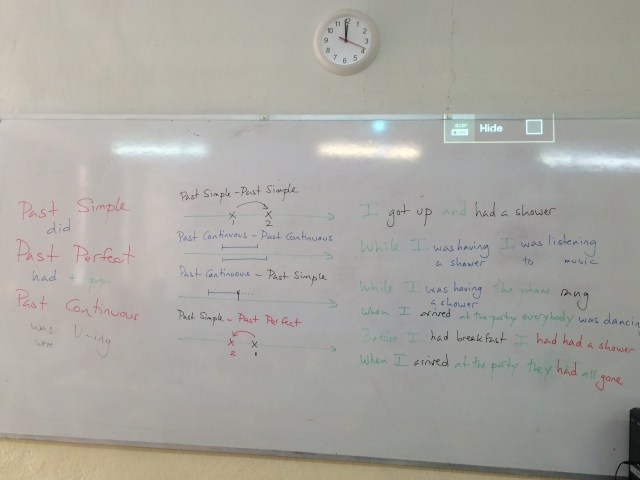 Hide
Past Simple
did
Past Perfect
had + pp
Past Continuous
was V-ing
were
Past Simple - Past Simple
1 2
Past Continuous - Past Continuous
Past Continuous - Past Simple
Past Simple - Past Perfect
2 1
I got up and had a shower
While I was having I was listening
a shower to music
While I was having the phone rang
a shower
When I arrived at the party everybody was dancin
Before I had breakfast I had had a shower
When I arrived at the party they had all gone